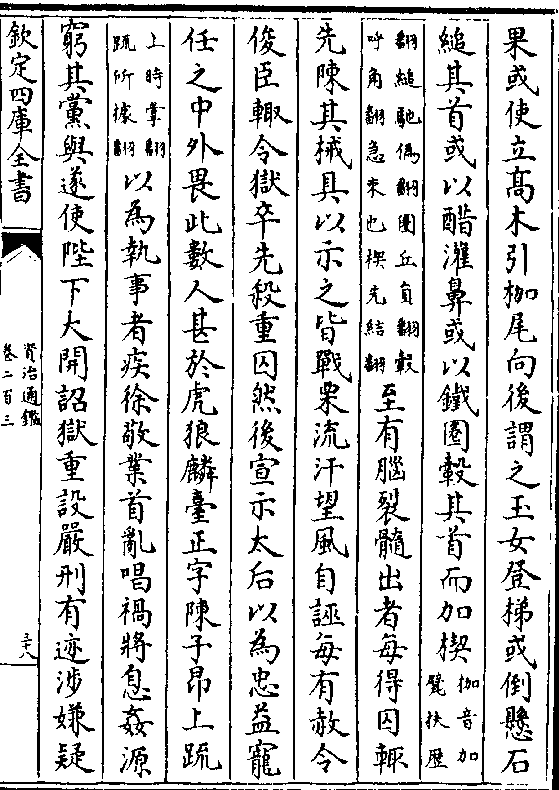 果或使立髙木引枷尾向後謂之玉女登梯或倒懸石
縋其首或以醋灌鼻或以鐵圈轂其首而加楔枷音加甓扶歴
翻縋馳偽翻圈丘員翻轂呼角翻急束也楔先結翻至有腦裂髓出者每得囚輒
先陳其械具以示之皆戰栗流汗望風自誣每有赦令
俊臣輙令獄卒先殺重囚然後宣示太后以為忠益寵
任之中外畏此數人甚於虎狼麟臺正字陳子昂上䟽
上時掌翻䟽所據翻以為執事者疾徐敬業首亂唱禍將息姦源
窮其黨與遂使陛下大開詔獄重設嚴刑有迹涉嫌疑
欽定四庫全書
資治通鑑
卷二百三
三十八